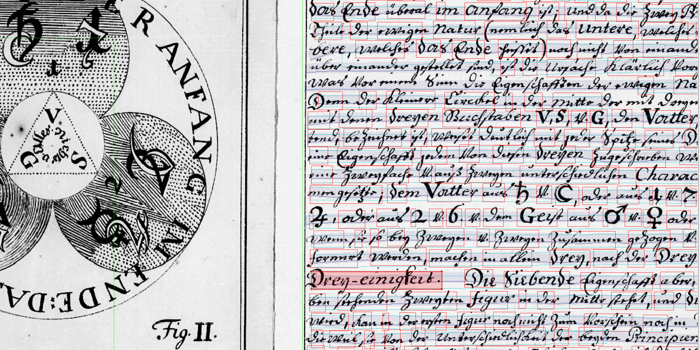 ER ANFANG IM ENDE: DA
V.
G
S
1
2
Fig. II.
das Ende überal im anfang ist; und da die zwey
Theile der ewigen Natur (nemlich das untere, welches
obere, welches das Ende heisset) noch nicht von einand
über einander gestellet sind, ist die Ursache klärlich
was vor einem Sinn die Eigenschafften der ewigen Na
Denn der kleinere Circkel in der mitte der mit
mit denen dreyen Buchstaben V, S, v. G, den Vatter,
bezeichnet ist, weiset deutlich mit jeder Spitze seines
eine Eigenschafft jedem von diesen dreyen zugeschrieben
eine zweyfache v. aus zweyen unterschiedlichen Charac
mengesetzte, dem Vatter aus ♄ v. ☾, oder aus 1 v. 7
♃, oder aus 2 v. 6 v. dem Geist aus ♂ v. ♀ oder
wenn sie so bey zweyen v. zweyen zusammen gezogen v.
formret werden, machen in allein Drey, nach der Drey
Drey-einigkeit. Die Siebende Eigenschafft aber,
ben stehenden zweyten Figur in der mitte steht, und
wird, kan in der ersten Figur noch nicht zum Vorschein noch in
die weil sie von der Unterschiedlichkeit der beyden Principi